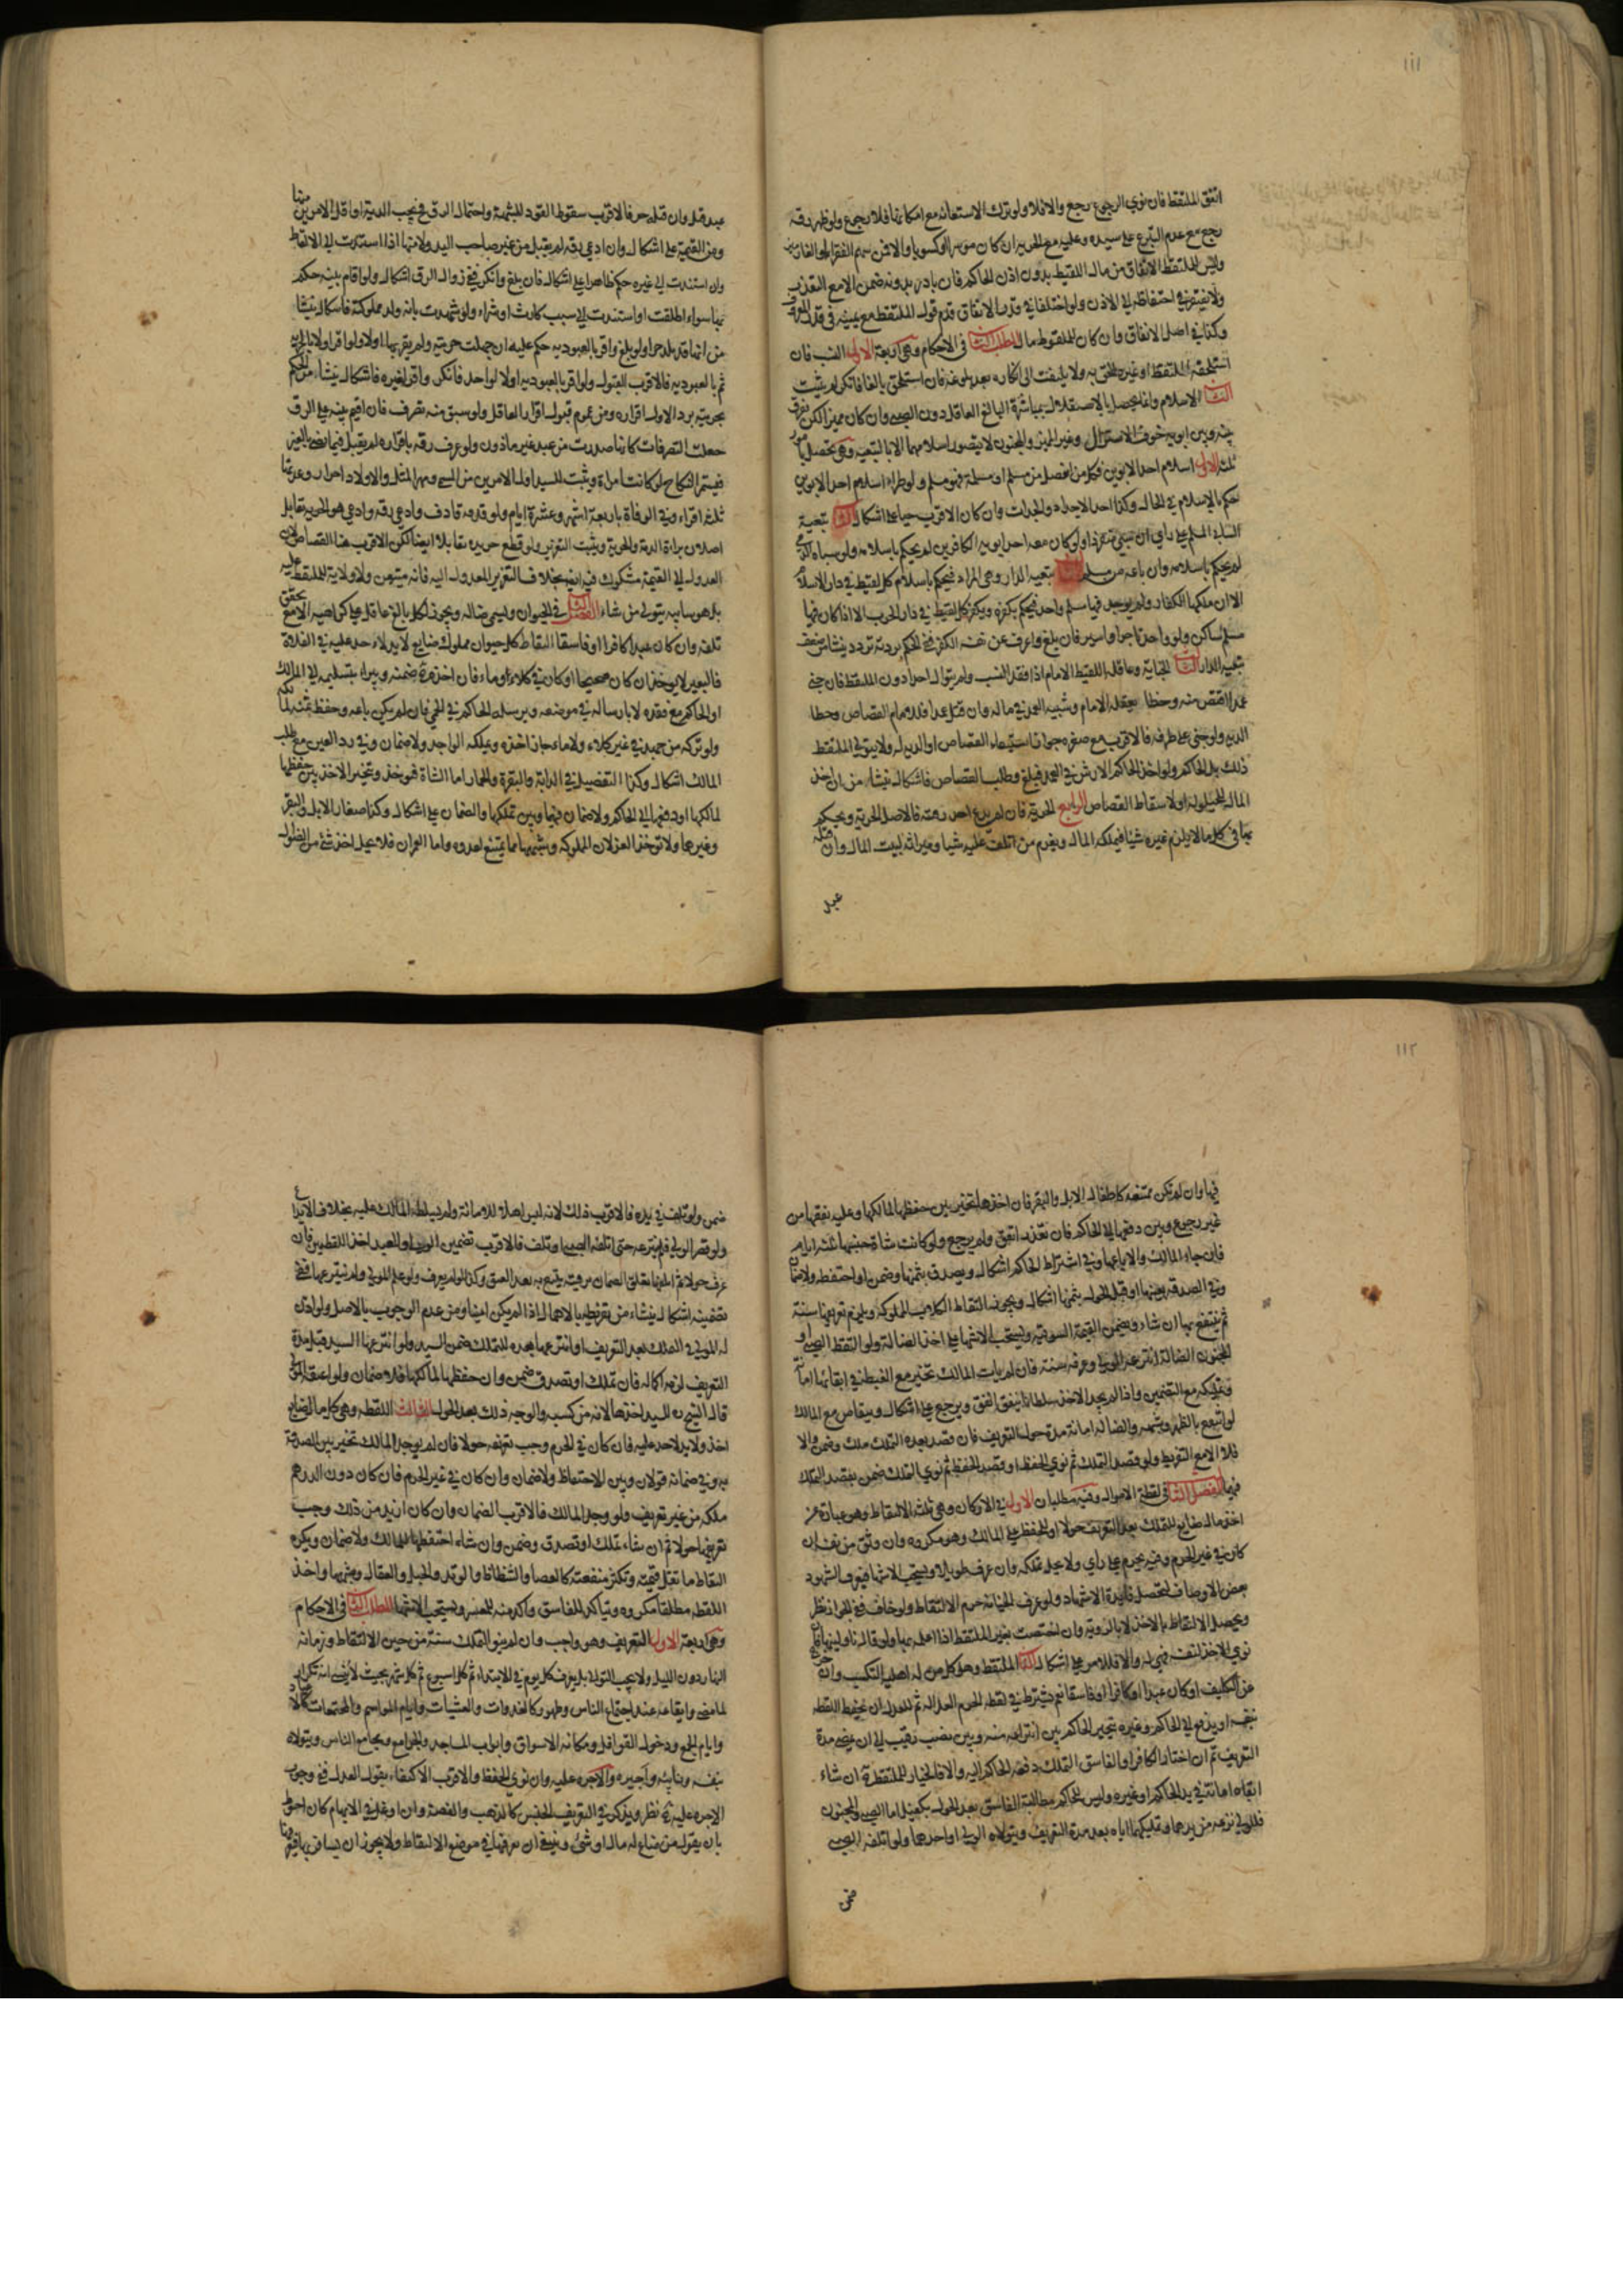 ١١١
انفق الملتقط فان نوي الرجوع رجع والا فلا ولو ترك الاستعانة مع امكانها فلا رجوع ولو ظهر رقه
رجع مع عدم التبرع على سيده وعليه مع الحرية ان كان موسرا او كسوبا والا فمن سهم الفقراء او الغارمين
وليس للملتقط الانفاق من مال اللقيط بدون اذن الحاكم فان بادر بدونه ضمن الا مع التعذر
ولا يفتقر في احتفاظه الى الاذن ولو اختلفا في قدر الانفاق قدم قول الملتقط مع يمينه في قدر المعروف
وكذا في اصل الانفاق وان كان للملقوط مال المطلب الثالث في الاحكام وهي اربعة الاول النسب فان
استلحقه الملتقط او غيره الحق به ولا يلتفت الى انكاره بعد بلوغه فان استلحق بالغا فانكر لم يثبت
الثاني الاسلام وانما يحصل بالاستقلال بمباشرة البالغ العاقل دون الصبي وان كان مميزا لكن يفرق
بينه وبين ابويه خوف الاستزلال وغير المميز والمجنون لا يتصور اسلامهما الا بالتبعية وهي تحصل بامور
ثلثه الاول اسلام احد الابوين فكل من انفصل من مسلم او مسلمة فهو مسلم ولو طراء اسلام احد الابوين
حكم بالاسلام في الحال وكذا احد الاجداد والجدات وان كان الاقرب حيا على اشكال الثاني تبعية
السابي المسلم على راي ان سبي منفردا ولو كان معه احد ابويه الكافرين لم يحكم باسلامه ولو سباه الذمي
لم يحكم باسلامه وان باعه من مسلم الثالث تبعية الدار وهي المراد فيحكم باسلام كل لقيط في دار الاسلام
الا ان ملكها الكفار ولم يوجد فيها مسلم واحد فيحكم بكفره وبكفر كل لقيط في دار الحرب الا اذا كان فيها
مسلم ساكن ولو واحد تاجرا واسير فان بلغ واعرف عن نفسه الكفر ففي الحكم بردته تردد ينشاء من ضعف
تبعية الدار الثالث الجناية وعاقلة اللقيط الامام اذا فقد النسب ولم يتوال احدا دون الملتقط فان جني
عمدا اقتص منه وخطا يعقله الامام وشبيه العمد في ماله وان قتل عمدا فللامام القصاص وخطا
الدية ولو جني على طرفه فالاقرب مع صغره جواز استيفاء القصاص او الدية له ولا يتولي الملتقط
ذلك بل الحاكم ولو اخذ الحاكم الارش في العمد فبلغ وطلب القصاص فاشكال ينشاء من ان اخذ
المال للحيلولة او لاسقاط القصاص الرابع الحرية فان لم يدع احد رقيته فالاصل الحرية ويحكم
بها في كل ما لا يلزم غيره شيئا فيملكه المال ويغرم من اتلف عليه شيئا وميراثه لبيت المال وان قتله
عبد
عبد قتل وان قتله حر فالاقرب سقوط القود للشبهة واحتمال الرق فيجب الدية او اقل الامرين منها
ومن القيمة على اشكال وان ادعي رقه لم يقبل من غير صاحب اليد ولا منها اذا استندت الى الالتقاط
وان استندت الى غيره حكم ظاهرا على اشكال فان بلغ وانكر ففي زوال الرق اشكال ولو اقام بينة حكم
بها سواء اطلقت او استندت الى سبب كارث او شراء ولو شهدت بانه ولد مملوكته فاشكال ينشا
من انها قد تلد حرا ولو بلغ واقر بالعبودية حكم عليه ان جهلت حريته ولم يقر بها اولا ولو اقر اولا بالحرية
ثم بالعبودية فالاقرب القبول ولو اقر بالعبودية اولا لواحد فانكر واقر لغيره فاشكال ينشاء من الحكم
بحريته برد الاول اقراره ومن عموم قبول اقرار العاقل ولو سبق منه تصرف فان اقيم بينه على الرق
جعلت التصرفات كانها صدرت من عبد غير ماذون ولو عرف رقه باقراره لم يقبل فيما يضر بالغير
فيستمر النكاح لو كانت امراة ويثبت للسيد اقل الامرين من المسمي ومهر المثل والاولاد احرار وعدتها
ثلثة اقراء وفي الوفاة باربعة اشهر وعشرة ايام ولو قذفه قاذف وادعي رقه وادعي هو الحرية تقابل
اصلان براءة الذمة والحرية ويثبت التعزير ولو قطع حر يده تقابلا ايضا لكن الاقرب هنا القصاص لان
العدول الى القيمة مشكوك فيه ايضا بخلاف التعزير المعدول اليه فانه متيقن ولا ولاية للملتقط عليه
بل هو سايبه يتولي من شاء الفصل الثاني في الحيوان ويسمي ضالة ويجوز لكل بالغ عاقل على كراهية الا مع تحقق
تلفه وان كان عبدا كافرا او فاسقا التقاط كل حيوان مملوك ضايع لا يد لاحد عليه في الفلاة
فالبعير لا يؤخذ ان كان صحيحا او كان في كلاء وماء فان اخذه ضمنه ويبراء بتسليمه الى المالك
او الحاكم مع فقده لا بارساله في موضعه ويرسله الحاكم في الحمي فان لم يكن باعه وحفظ ثمنه لمالكه
ولو تركه من جهد في غير كلاء ولا ماء جاز اخذه ويملكه الواجد ولا ضمان وفي رد العين مع طلب
المالك اشكال وكذا التفصيل في الدابة والبقرة والحمار اما الشاة فتؤخذ ويتخير الاخذ بين حفظها
لمالكها او دفعها الى الحاكم ولا ضمان فيهما وبين تملكها والضمان على اشكال وكذا صغار الابل والبقر
وغيرها ولا تؤخذ الغزلان المملوكه وشبهها مما يمتنع بعدوه واما العمران فلا يحل اخذ شئ من الضوال
١١٢
فيها وان لم تكن ممتنعه كاطفال الابل والبقر فان اخذها تخير بين حفظها لمالكها وعليه نفقتها من
غير رجوع وبين دفعها الى الحاكم فان تعذر انفق ولم يرجع ولو كانت شاة حبسها ثلثة ايام
فان جاء المالك والا باعها وفي اشتراط الحاكم اشكال ويصدق بثمنها وضمن او احتفظه ولا ضمان
وفي الصدقة بعينها او قبل الحول بثمنها اشكال ويجوز التقاط الكلاب المملوكه ويلزم تعريفها سنة
ثم ينتفع بها ان شاء ويضمن القيمة السوقية ويستحب الاشهاد على اخذ الضالة ولو التقط الصبي او
المجنون الضالة انتزعه الولي وعرفه سنة فان لم يات المالك تخير مع الغبطة في ابقائها امانة
وتمليكه مع التضمين واذا لم يجد الاخذ سلطانا ينفق انفق ويرجع على اشكال ويتقاص مع المالك
لو انتفع بالظهر وشبهه والضالة امانة مدة حول التعريف فان قصد بعده التملك ملك وضمن والا
فلا الا مع التفريط ولو قصد التملك ثم نوي الحفظ او قصد الحفظ ثم نوي التملك ضمن بقصد التملك
فيهما الفصل الثالث في لقطة الاموال وفيه مطلبان الاول في الاركان وهي ثلثة الالتقاط وهو عبارة عن
اخذ مال ضايع للتملك بعد التعريف حولا او للحفظ على المالك وهو مكروه وان وثق من نفسه ان
كان في غير الحرم وفيه يحرم على راي ولا يحل تملكه وان عرف طويلا ويستحب الاشهاد فيعرف الشهود
بعض الاوصاف لتحصل فايدة الاشهاد ولو عرف الخيانة حرم الالتقاط ولو خاف ففي الجواز نظر
ويحصل الالتقاط بالاخذ لا بالرؤية وان اختصت بغير الملتقط اذا اعلمه بها ولو قال ناولنيها فان
نوي الاخذ لنفسه فهي له والا فللامر على اشكال الثاني الملتقط وهو كل من له اهلية التكسب وان خرج
عن التكليف او كان عبدا او كافرا او فاسقا نعم يشترط في لقطة الحرم العدالة ثم للعدل ان يحفظ اللقطة
بنفسه او يدفع الى الحاكم وغيره يتخير الحاكم بين انتزاعه منه وبين نصب رقيب الى ان يمضي مدة
التعريف ثم ان اختار الكافر او الفاسق التملك دفعه الحاكم اليه والا فالخيار للملتقط ان شاء
ابقاه امانة في يد الحاكم او غيره وليس للحاكم مطالبة الفاسق بعد الحول بكفيل اما الصبي والمجنون
فللولي نزعه من يدهما وتمليكهما اياه بعد مدة التعريف ويتولاه الولي او احدهما ولو اتلفه الصبي
ضمن
ضمن ولو تلف في يده فالاقرب ذلك لانه ليس اهلا للامانة ولم يسلطه المالك عليه بخلاف الايداع
ولو قصر الولي فلم ينتزعه حتى اتلفه الصبي او تلف فالاقرب تضمين الولي وللعبد اخذ اللقطتين فان
عرف حولا ثم اتلفها تعلق الضمان برقبته يتبع به بعد العتق وكذا لو لم يعرف ولو علم المولي ولم ينتزعها ففي
تضمينه اشكال ينشاء من تفريطه بالاهمال اذا لم يكن امينا ومن عدم الوجوب بالاصل ولو اذن
له المولي في التملك بعد التعريف او انتزعها بعده للتملك ضمن السيد ولو انتزعها السيد قبل مدة
التعريف لزمه اكماله فان تملك او تصدق ضمن وان حفظها لمالكها فلا ضمان ولو اعتقه المولي
قال الشيخ للسيد اخذها لانه من كسبه والوجه ذلك بعد الحول الثالث اللقطه وهي كل مال ضايع
اخذ ولا يد لاحد عليه فان كان في الحرم وجب تعريفه حولا فان لم يوجد المالك تخير بين الصدقة
به وفي ضمانه قولان وبين الاحتفاظ ولا ضمان وان كان في غير الحرم فان كان دون الدرهم
ملكه من غير تعريف ولو وجد المالك فالاقرب الضمان وان كان ازيد من ذلك وجب
تعريفها حولا ثم ان شاء تملك او تصدق وضمن وان شاء احتفظها للمالك ولا ضمان ويكره
التقاط ما تقل قيمته وتكثر منفعته كالعصا والشظاظ والوتد والحبل والعقال وشبهها واخذ
اللقطه مطلقا مكروه ويتاكد للفاسق واكد منه للمعسر ويستحب الاشهاد المطلب الثاني في الاحكام
وهي اربعة الاول التعريف وهو واجب وان لم ينو التملك سنة من حين الالتقاط وزمانه
النهار دون الليل ولا يجب التوالي بل يعرف كل يوم في الابتداء ثم كل اسبوع ثم كل شهر بحيث لا ينسي انه تكرار
لما مضي وايقاعه عند اجتماع الناس وظهورهم كالغدوات والعشيات وايام المواسم والمجتمعات كالاعياد
وايام الجمع ودخول القوافل ومكانه الاسواق وابواب المساجد والجوامع ومجامع الناس ويتولاه
بنفسه وبنايبه واجيره والاجره عليه وان نوي الحفظ والاقرب الاكتفاء بقول العدل ففي وجوب
الاجره عليه نظر ويذكر في التعريف الجنس كالذهب والفضة وان اوغل في الابهام كان احوط
بان يقول من ضاع له مال او شئ وينبغي ان يعرفها في موضع الالتقاط ولا يجوز ان يسافر بها فيعرفها